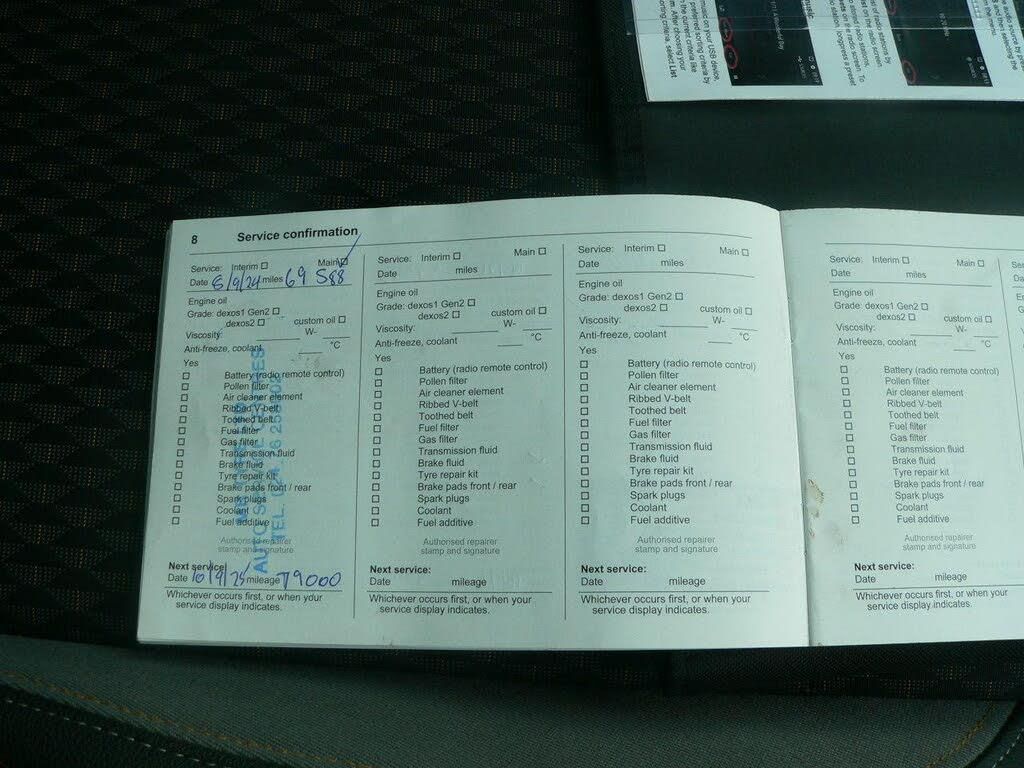 music on your USB device,
preferred sorting criteria by
the current criteria like
m. After choosing your
orting criteria, select List
music
list of radio stations by
st on the radio screen.
ored radio stations,
on the radio screen. To
station, longpress a preset
audio source by
and then selecting the
n the menu
8 Service confirmation
Service: Interim Main
Date 5/9/24 miles 69 588
Engine oil
Grade: dexos1 Gen2
dexos2 custom oil
Viscosity: W-
Anti-freeze, coolant °C
Yes
Battery (radio remote control)
Pollen filter
Air cleaner element
Ribbed V-belt
Toothed belt
Fuel filter
Gas filter
Transmission fluid
Brake fluid
Tyre repair kit
Brake pads front / rear
Spark plugs
Coolant
Fuel additive
Authorised repairer
stamp and signature
TEL.
Next service:
Date 10/9/25 mileage 79000
Whichever occurs first, or when your
service display indicates.
Service: Interim Main
Date miles
Engine oil
Grade: dexos1 Gen2
dexos2 custom oil
Viscosity: W-
Anti-freeze, coolant °C
Yes
Battery (radio remote control)
Pollen filter
Air cleaner element
Ribbed V-belt
Toothed belt
Fuel filter
Gas filter
Transmission fluid
Brake fluid
Tyre repair kit
Brake pads front / rear
Spark plugs
Coolant
Fuel additive
Authorised repairer
stamp and signature
Next service:
Date mileage
Whichever occurs first, or when your
service display indicates.
Service: Interim Main
Date miles
Engine oil
Grade: dexos1 Gen2
dexos2 custom oil
Viscosity: W-
Anti-freeze, coolant °C
Yes
Battery (radio remote control)
Pollen filter
Air cleaner element
Ribbed V-belt
Toothed belt
Fuel filter
Gas filter
Transmission fluid
Brake fluid
Tyre repair kit
Brake pads front / rear
Spark plugs
Coolant
Fuel additive
Authorised repairer
stamp and signature
Next service:
Date mileage
Whichever occurs first, or when your
service display indicates.
Service: Interim Main
Date miles
Engine oil
Grade: dexos1 Gen2
dexos2 custom oil
Viscosity: W-
Anti-freeze, coolant °C
Yes
Battery (radio remote control)
Pollen filter
Air cleaner element
Ribbed V-belt
Toothed belt
Fuel filter
Gas filter
Transmission fluid
Brake fluid
Tyre repair kit
Brake pads front / rear
Spark plugs
Coolant
Fuel additive
Authorised repairer
stamp and signature
Next service:
Date mileage
Whichever occurs first, or when your
service display indicates.